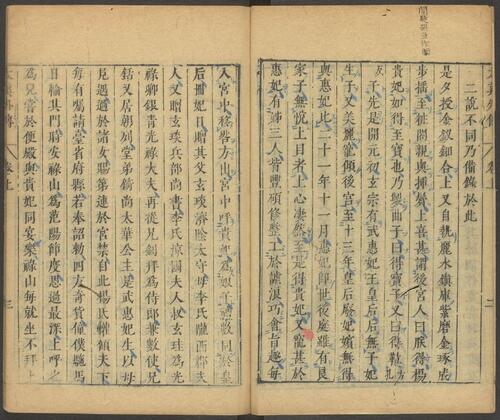 二說不同乃備錄於此
是夕授金釵鈿合上又自執麗水鎮庫紫磨金琢成
步搖至粧閣親與插鬢上喜甚謂後宮人曰朕得楊
貴妃如得至寶也乃製曲子曰得寶子又曰得
子先是開元初玄宗有武惠妃王皇后后無子妃
生子又美麗寵傾後宮至十三年皇后廢妃嬪無得
與惠妃比二十一年十一月惠妃卽世後庭雖有良
家子無悅上目者上心淒然至是得貴妃又寵甚於
惠妃有姊三人皆豐碩修整工於謔浪巧會旨趣每
入宮中移晷方出宮中呼貴妃為娘子禮數同於皇
后冊妃日贈其父玄琰濟陰太守母李氏隴西郡夫
人又贈玄琰兵部尚書李氏涼國夫人叔玄珪為光
祿卿銀青光祿大夫再從兄釗拜為侍郎兼數使兄
銛又居朝列堂弟錡尚太華公主是武惠妃生以母
見遇過於諸女賜第連於宮禁自此楊氏權傾天下
每有囑請臺省府縣若奉詔勑四方奇貨僮僕駞馬
日輸其門時安祿山為范陽節度恩遇最深上呼之
為兒嘗於便殿與貴妃同宴樂祿山每就坐不拜上